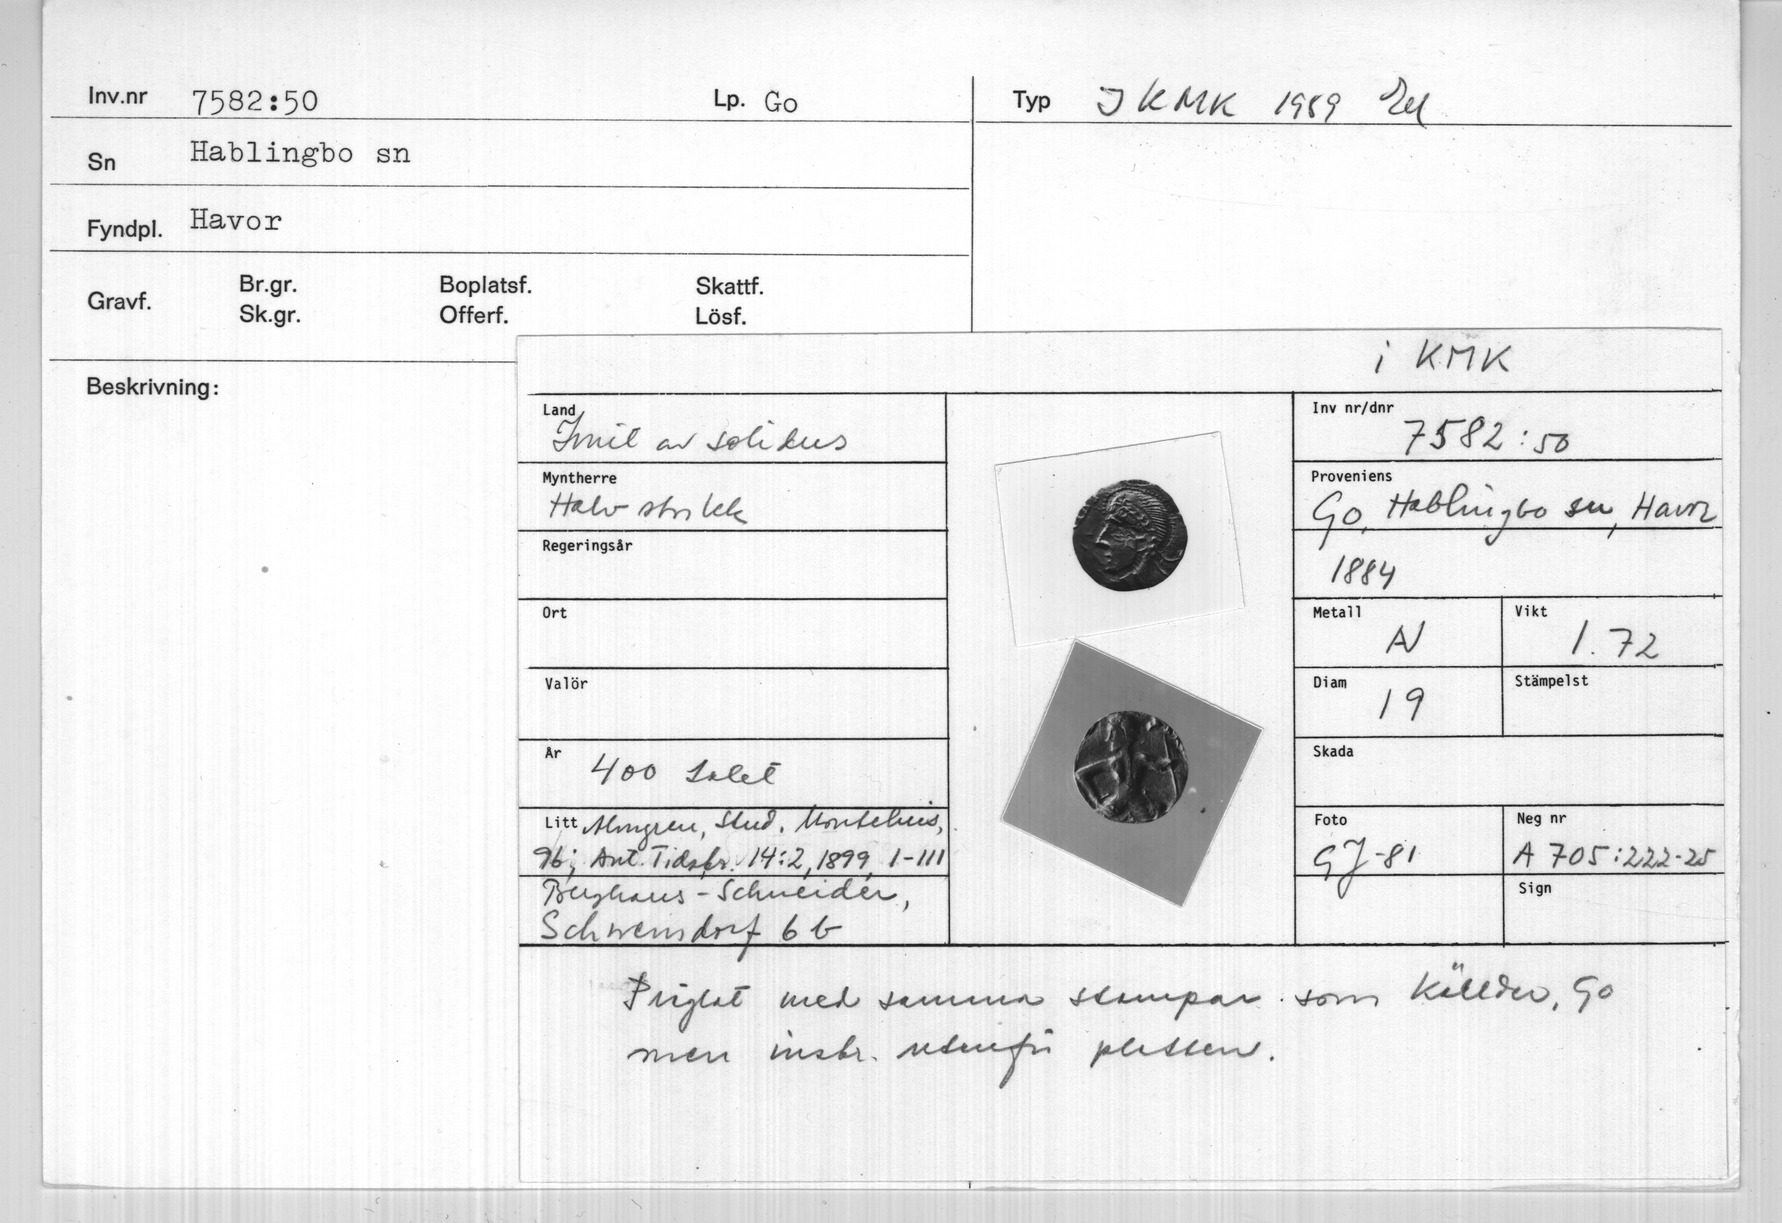 Inv.nr 7582:50 Lp. Go
Typ I KMK 1989
Sn Hablingbo sn
Fyndpl. Havor
Gravf. Br.gr. Boplatsf. Skattf.
Sk.gr. Offerf. Lösf.
Beskrivning:
i KMK
Land
Imit av solidus
Myntherre
Halv
Regeringsår
Ort
Valör
År 400 talet
Litt Almgren, Stud. Montelius,
96; Ant. Tidskr. 14:2, 1899, I-III
Berghaus-Schneider,
Schwensdorf 6 b
Inv nr/dnr
7582:50
Proveniens
Go, Hablingbo sn, Havor
1884
Metall
AV
Vikt
1.72
Diam
19
Stämpelst
Skada
Foto
GJ-81
Neg nr
A 705:222-25
Sign
Präglat med samma stampar som Källder, Go
men inskr. utanför plattan.